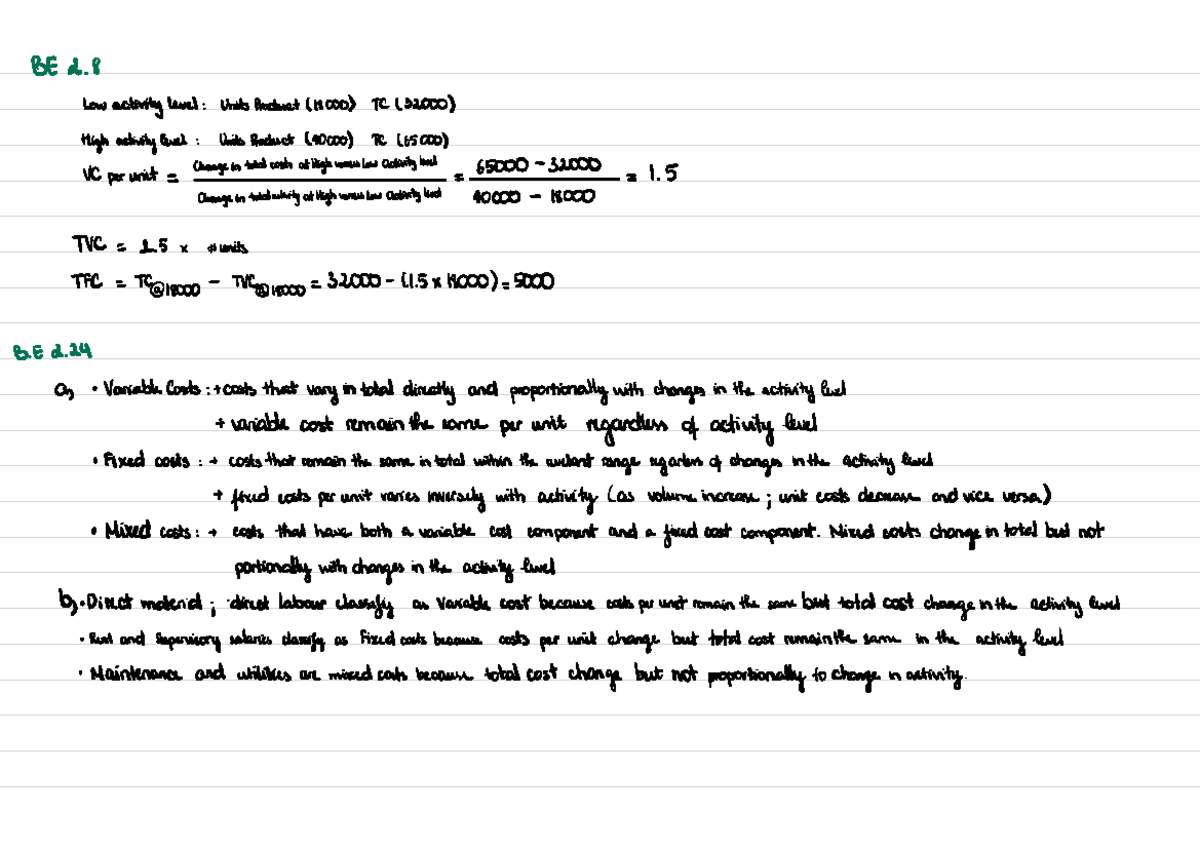 BE 2.8
Low activity level: Units Product (18000) TC (32000)
High activity level: Units Product (40000) TC (65000)
VC per unit = Change in total costs at High versus Low activity level / Change in total activity at High versus Low Activity level = 65000 - 32000 / 40000 - 18000 = 1.5
TVC = 1.5 x # units
TFC = TC@18000 - TVC@18000 = 32000 - (1.5 x 18000) = 5000
BE 2.24
a, • Variable Costs: + costs that vary in total directly and proportionally with changes in the activity level
+ variable cost remain the same per unit regardless of activity level
• Fixed costs: + costs that remain the same in total within the relevant range regardless of changes in the activity level
+ fixed costs per unit varies inversely with activity (as volume increase; unit costs decrease and vice versa)
• Mixed costs: + costs that have both a variable cost component and a fixed cost component. Mixed costs change in total but not
portionally with changes in the activity level
b, • Direct material; direct labour classify as variable cost because costs per unit remain the same but total cost change in the activity level
• Rent and Supervisory salaries classify as Fixed costs because costs per unit change but total cost remain the same in the activity level
• Maintenance and utilities are mixed costs because total cost change but not proportionally to change in activity.